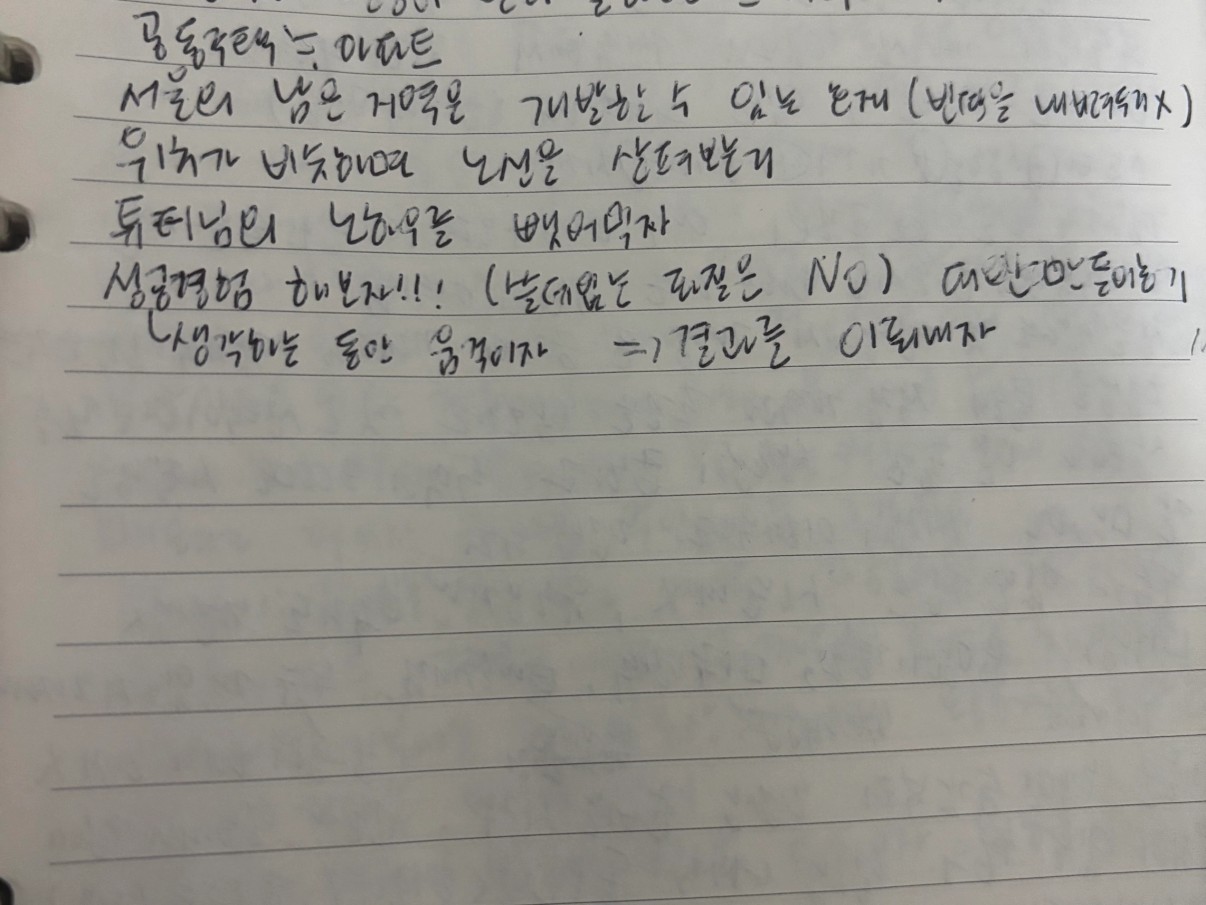 공동주택 ≒ 아파트
서울의 남은 지역은 개발할 수 있는 존재 (빈땅을 내버려두지X)
위치가 비슷하면 노선을 살펴보는지
튜터님의 노하우를 뺏어먹자
성공경험 해보자!!! (쓸데없는 퇴질은 NO)
생각하는 동안 움직이자 => 결과를 이뤄내자